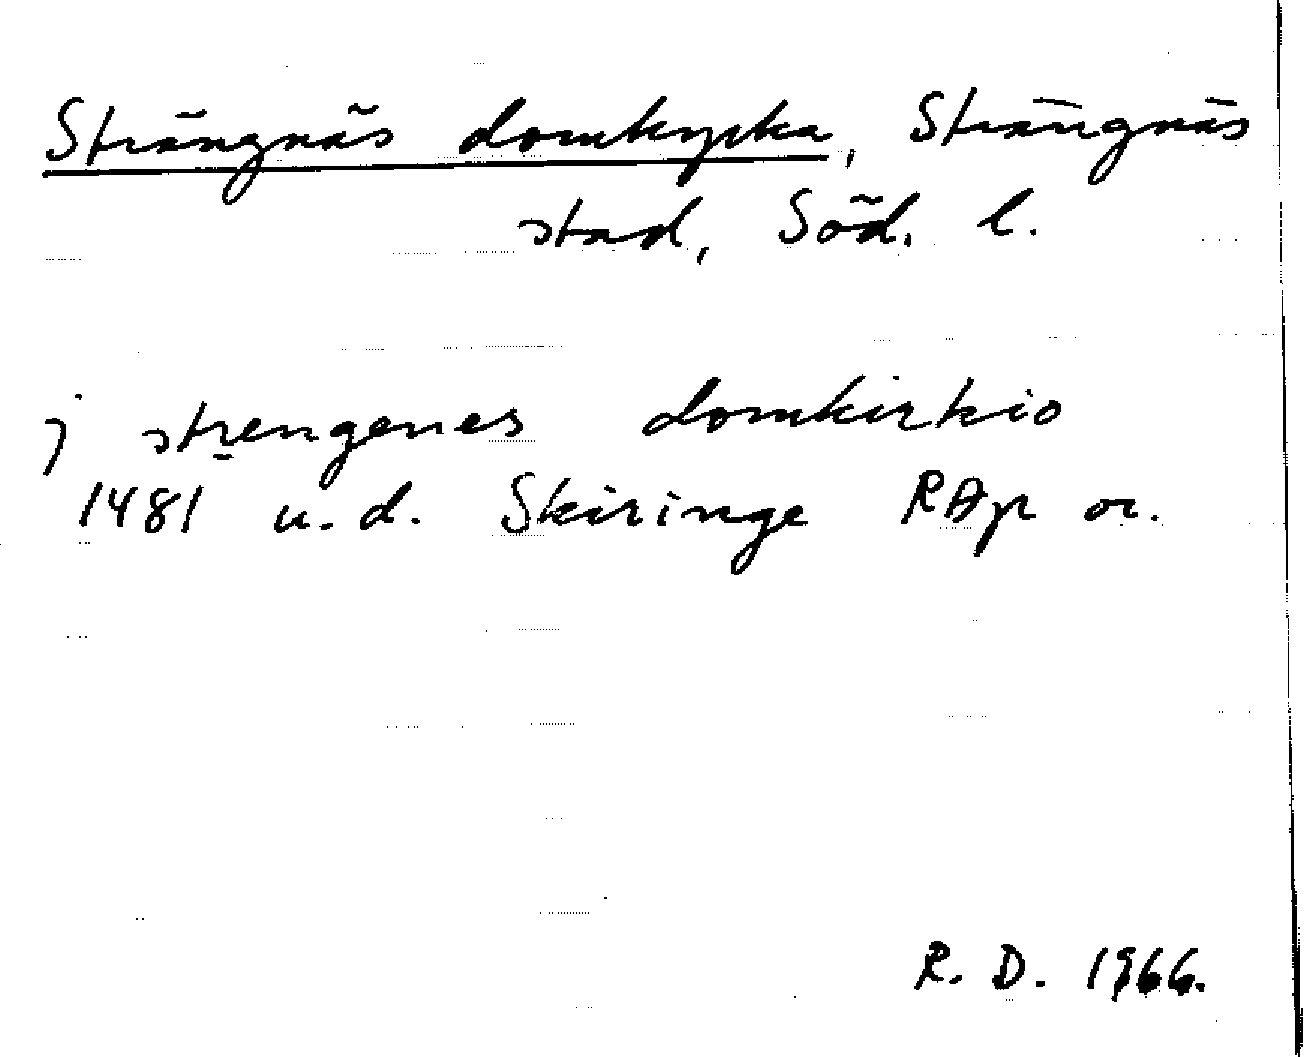 Strängnäs domkyrka, Strängnäs
stad, Söd. l.
j strengenes domkirkio
1481 u.d. Skiringe RAp or.
R. D. 1966.